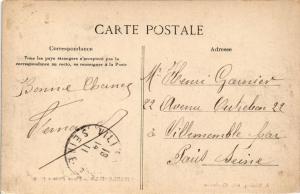 CARTE POSTALE
Correspondance
Tous les pays étrangers n'acceptent pas la
correspondance au recto, se renseigner à la Poste
Bonne Chance
Adresse
Mr Henri Garnier
22 Avenue Outrebon 22
à Villemomble par
Paris Seine